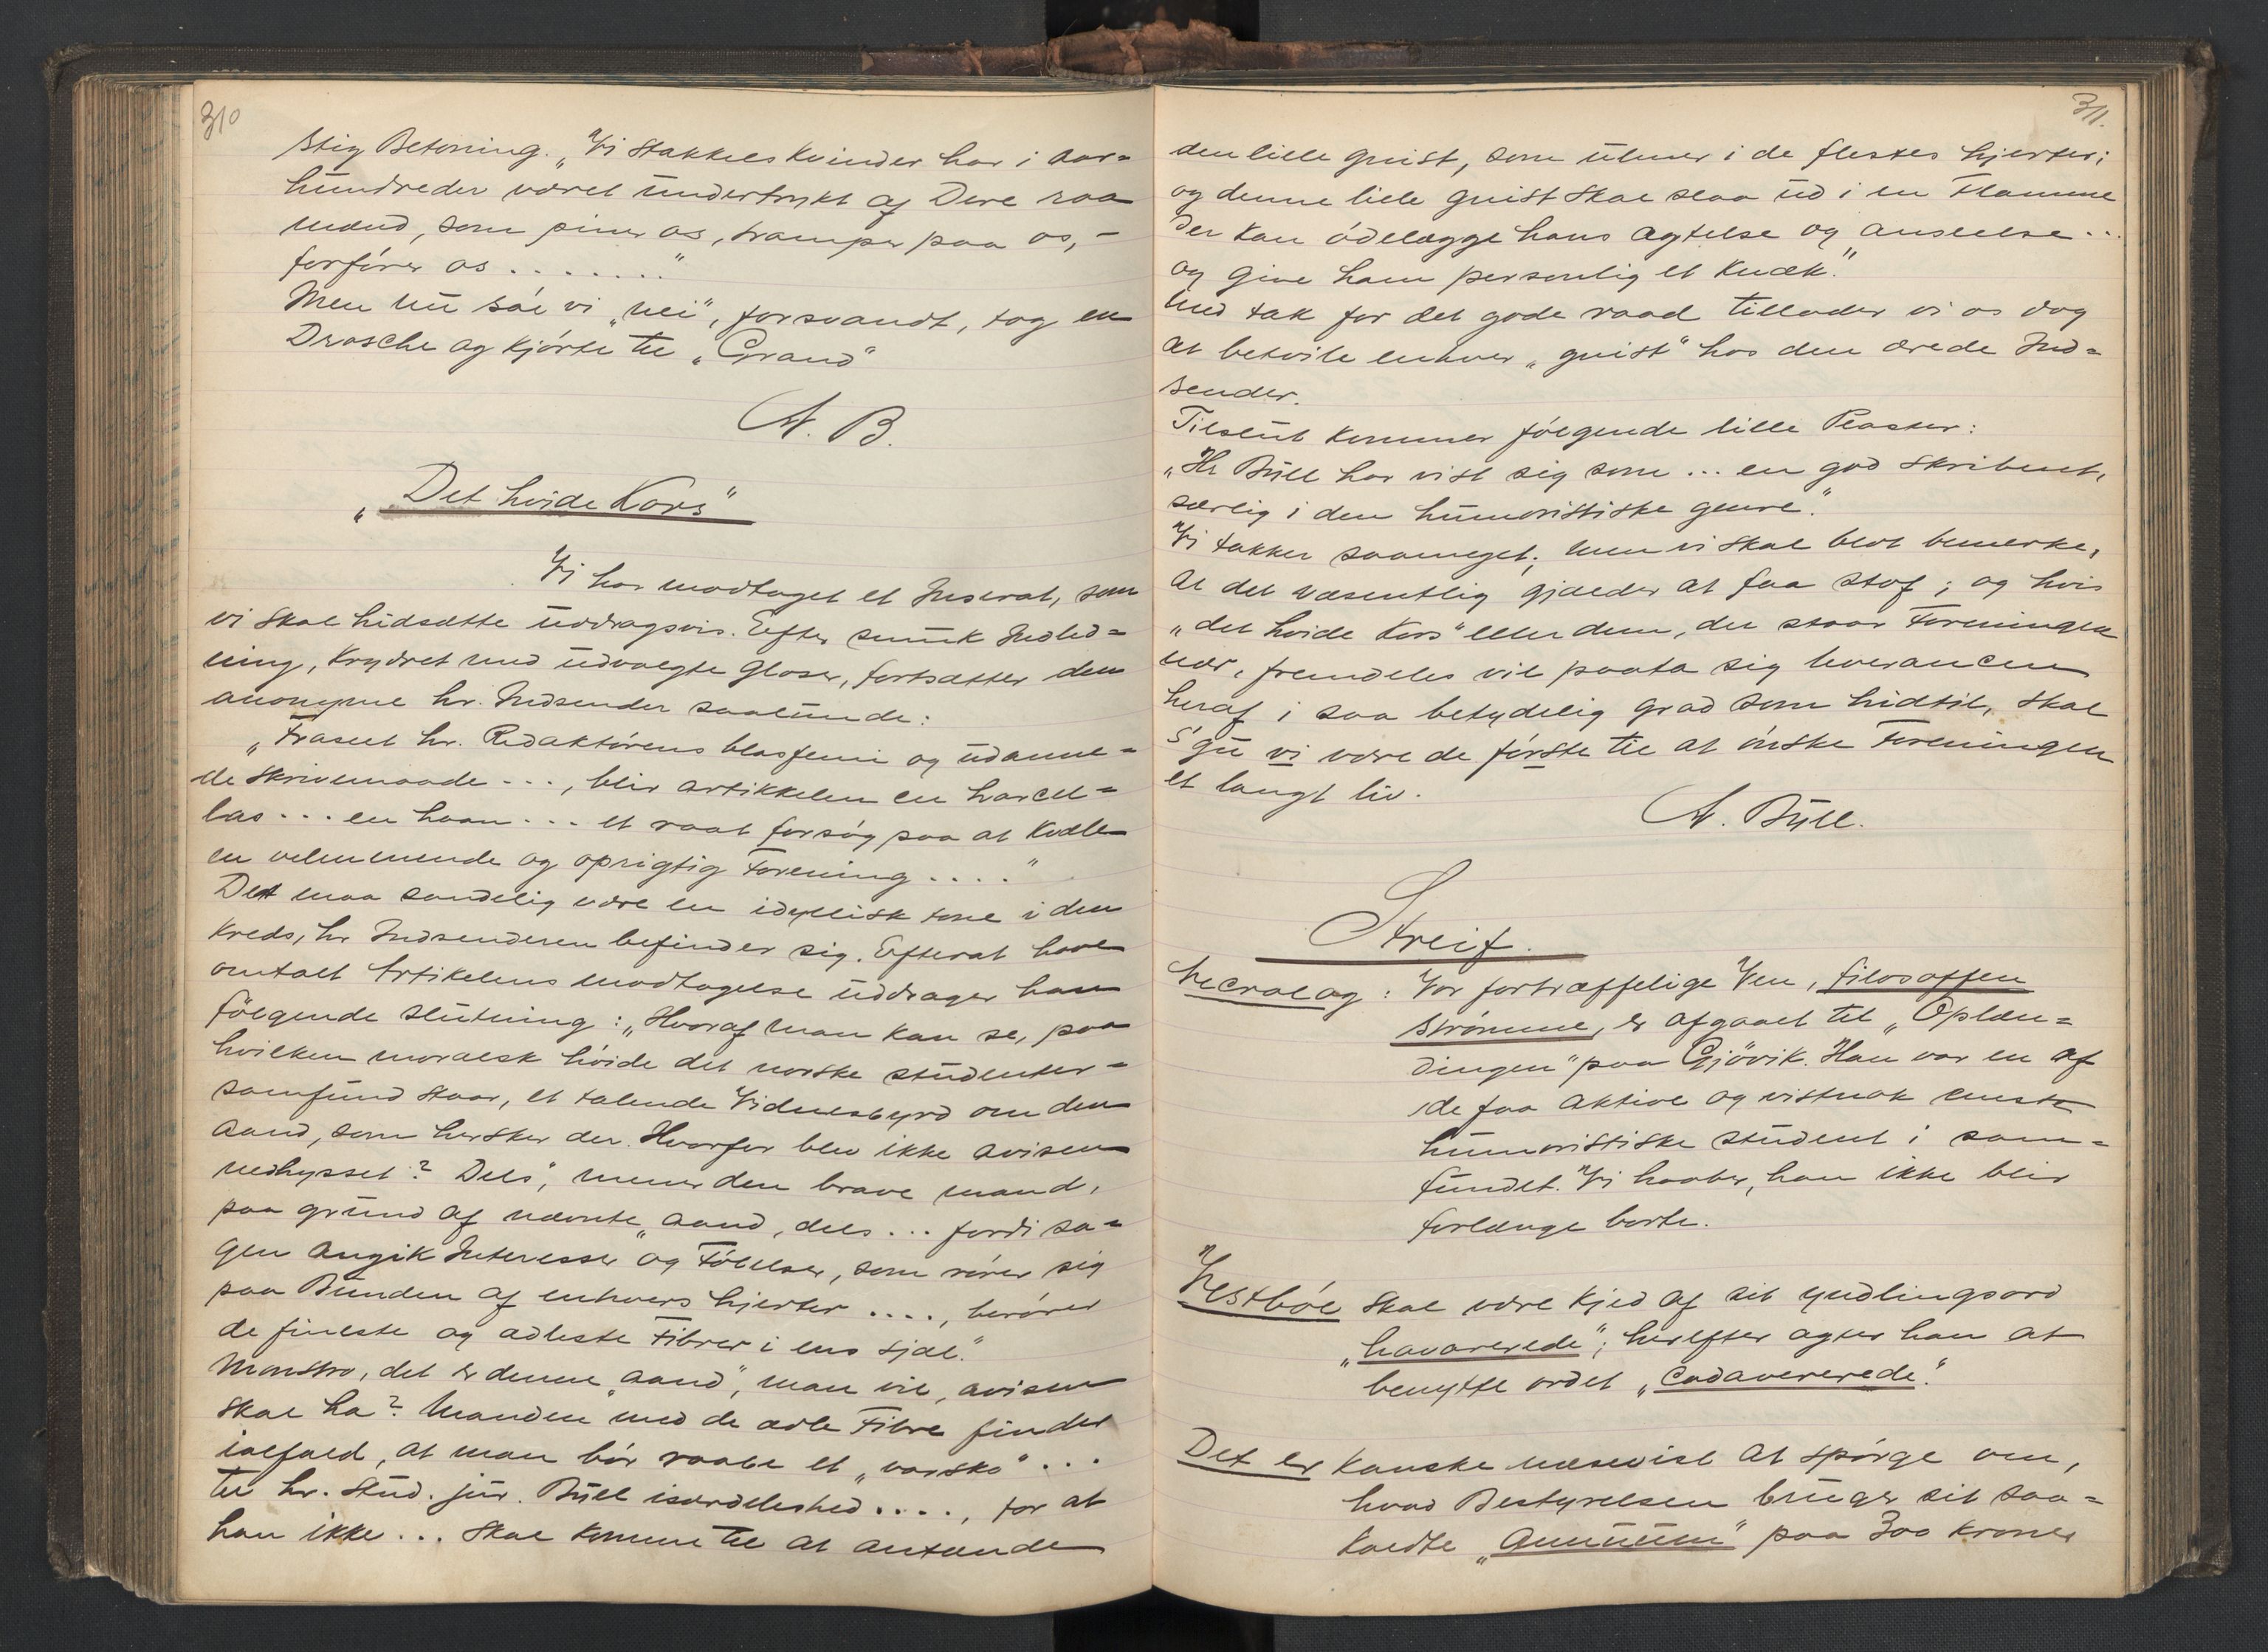 310
stig Betoning. „Vi Stakkels Kvinder har i Aar=
hundreder været undertrykt af Dere raa
mænd, som piner os, tramper paa os, –
forfører os . . . . . . ."
Men nu sa' vi „nei", forsvandt, tog en
Drosche og kjørte til „Grand"
A. B.
„Det hvide Kors"
Vi har modtaget et Inserat, som
vi skal hidsætte uddragsvis. Efter smuk Indled=
ning, krydret med udvalgte Gloser, fortsætter den
anonyme hr. Indsender saalunde:
„Fraseet hr. Redaktørens blasfemi og udanne=
de Skrivemaade . . ., blir artikkelen en harcel=
las . . . en haan . . . et raat forsøg paa at kvæle
en velmenende og oprigtig Forening . . . ."
Det maa sandelig være en idyllisk tone i den
Kreds, hr Indsenderen befinder sig. Efterat have
omtalt Artikelens modtagelse uddrager han
følgende slutning: „Hvoraf man kan se, paa
hvilken moralsk høide det norske studenter=
samfund staar, et talende Vidnesbyrd om den
aand, som hersker der. Hvorfor blev ikke avisen
nedhysset? Dels", mener den brave mand,
paa grund af nævnte „aand, dels . . . fordi sa=
gen angik Interesser og Følelser, som rører sig
paa Bunden af enhvers hjerter . . . ., berører
de fineste og ædleste Fibrer i ens sjæl."
Monstro, det er denne „aand", man vil, avisen
skal ha? Manden med de ædle Fibre finder
ialfald, at man bør raabe et „varsko" . . .
til hr. Stud. jur. Bull isærdeleshed . . . ., for at
han ikke . . . skal komme til at antænde
311.
den lille gnist, som ulmer i de flestes hjerter;
og denne lille gnist skal slaa ud i en Flamme
der kan ødelægge hans agtelse og anseelse . . .
og give ham personlig et knæk."
Med tak for det gode raad tillader vi os dog
at betvile enhver „gnist" hos den ærede Ind=
sender.
Tilslut kommer følgende lille Plaster:
„Hr Bull har vist sig som . . . en god skribent,
særlig i den humoristiske genre."
Vi takker saameget; men vi skal blot bemerke,
at det væsentlig gjælder at faa stof; og hvis
„det hvide Kors" eller dem, der staar Foreningen
nær, fremdeles vil paata sig leverancen
heraf i saa betydelig grad som hidtil, skal
s'gu vi være de første til at ønske Foreningen
et langt liv.
A. Bull.
Streif.
Necrolog: Vor fortræffelige Ven, filosoffen
Strømme, er afgaaet til „Oplæn=
dingen" paa Gjøvik. Han var en af
de faa aktive og vistnok eneste
humoristiske student i sam=
fundet. Vi haaber, han ikke blir
forlænge borte.
Vestbøe skal være kjed af sit yndlingsord
„havarerede"; herefter agter han at
benytte ordet „cadavererede."
Det er kanske næsevist at spørge om,
hvad Bestyrelsen bruger sit saa=
kaldte „annuum" paa 300 kroner